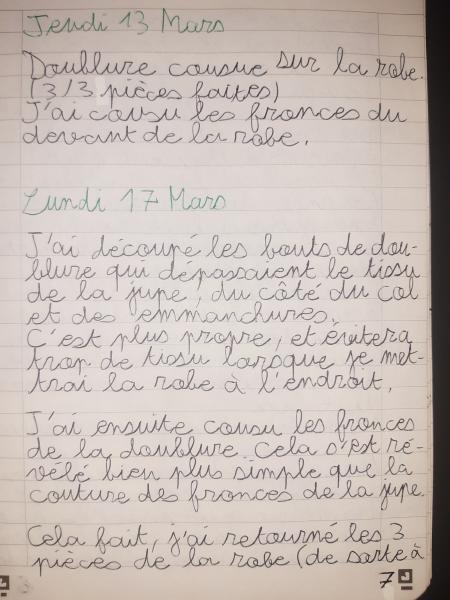 Jeudi 13 Mars
Doublure cousue sur la robe.
(3/3 pièces faites)
J'ai cousu les fronces du
devant de la robe.
Lundi 17 Mars
J'ai découpé les bouts de dou-
blure qui dépassaient le tissu
de la jupe, du côté du col
et des emmanchures.
C'est plus propre, et évitera
trop de tissu lorsque je met-
trai la robe à l'endroit.
J'ai ensuite cousu les fronces
de la doublure. Cela s'est ré-
vélé bien plus simple que la
couture des fronces de la jupe.
Cela fait, j'ai retourné les 3
pièces de la robe (de sorte à
7